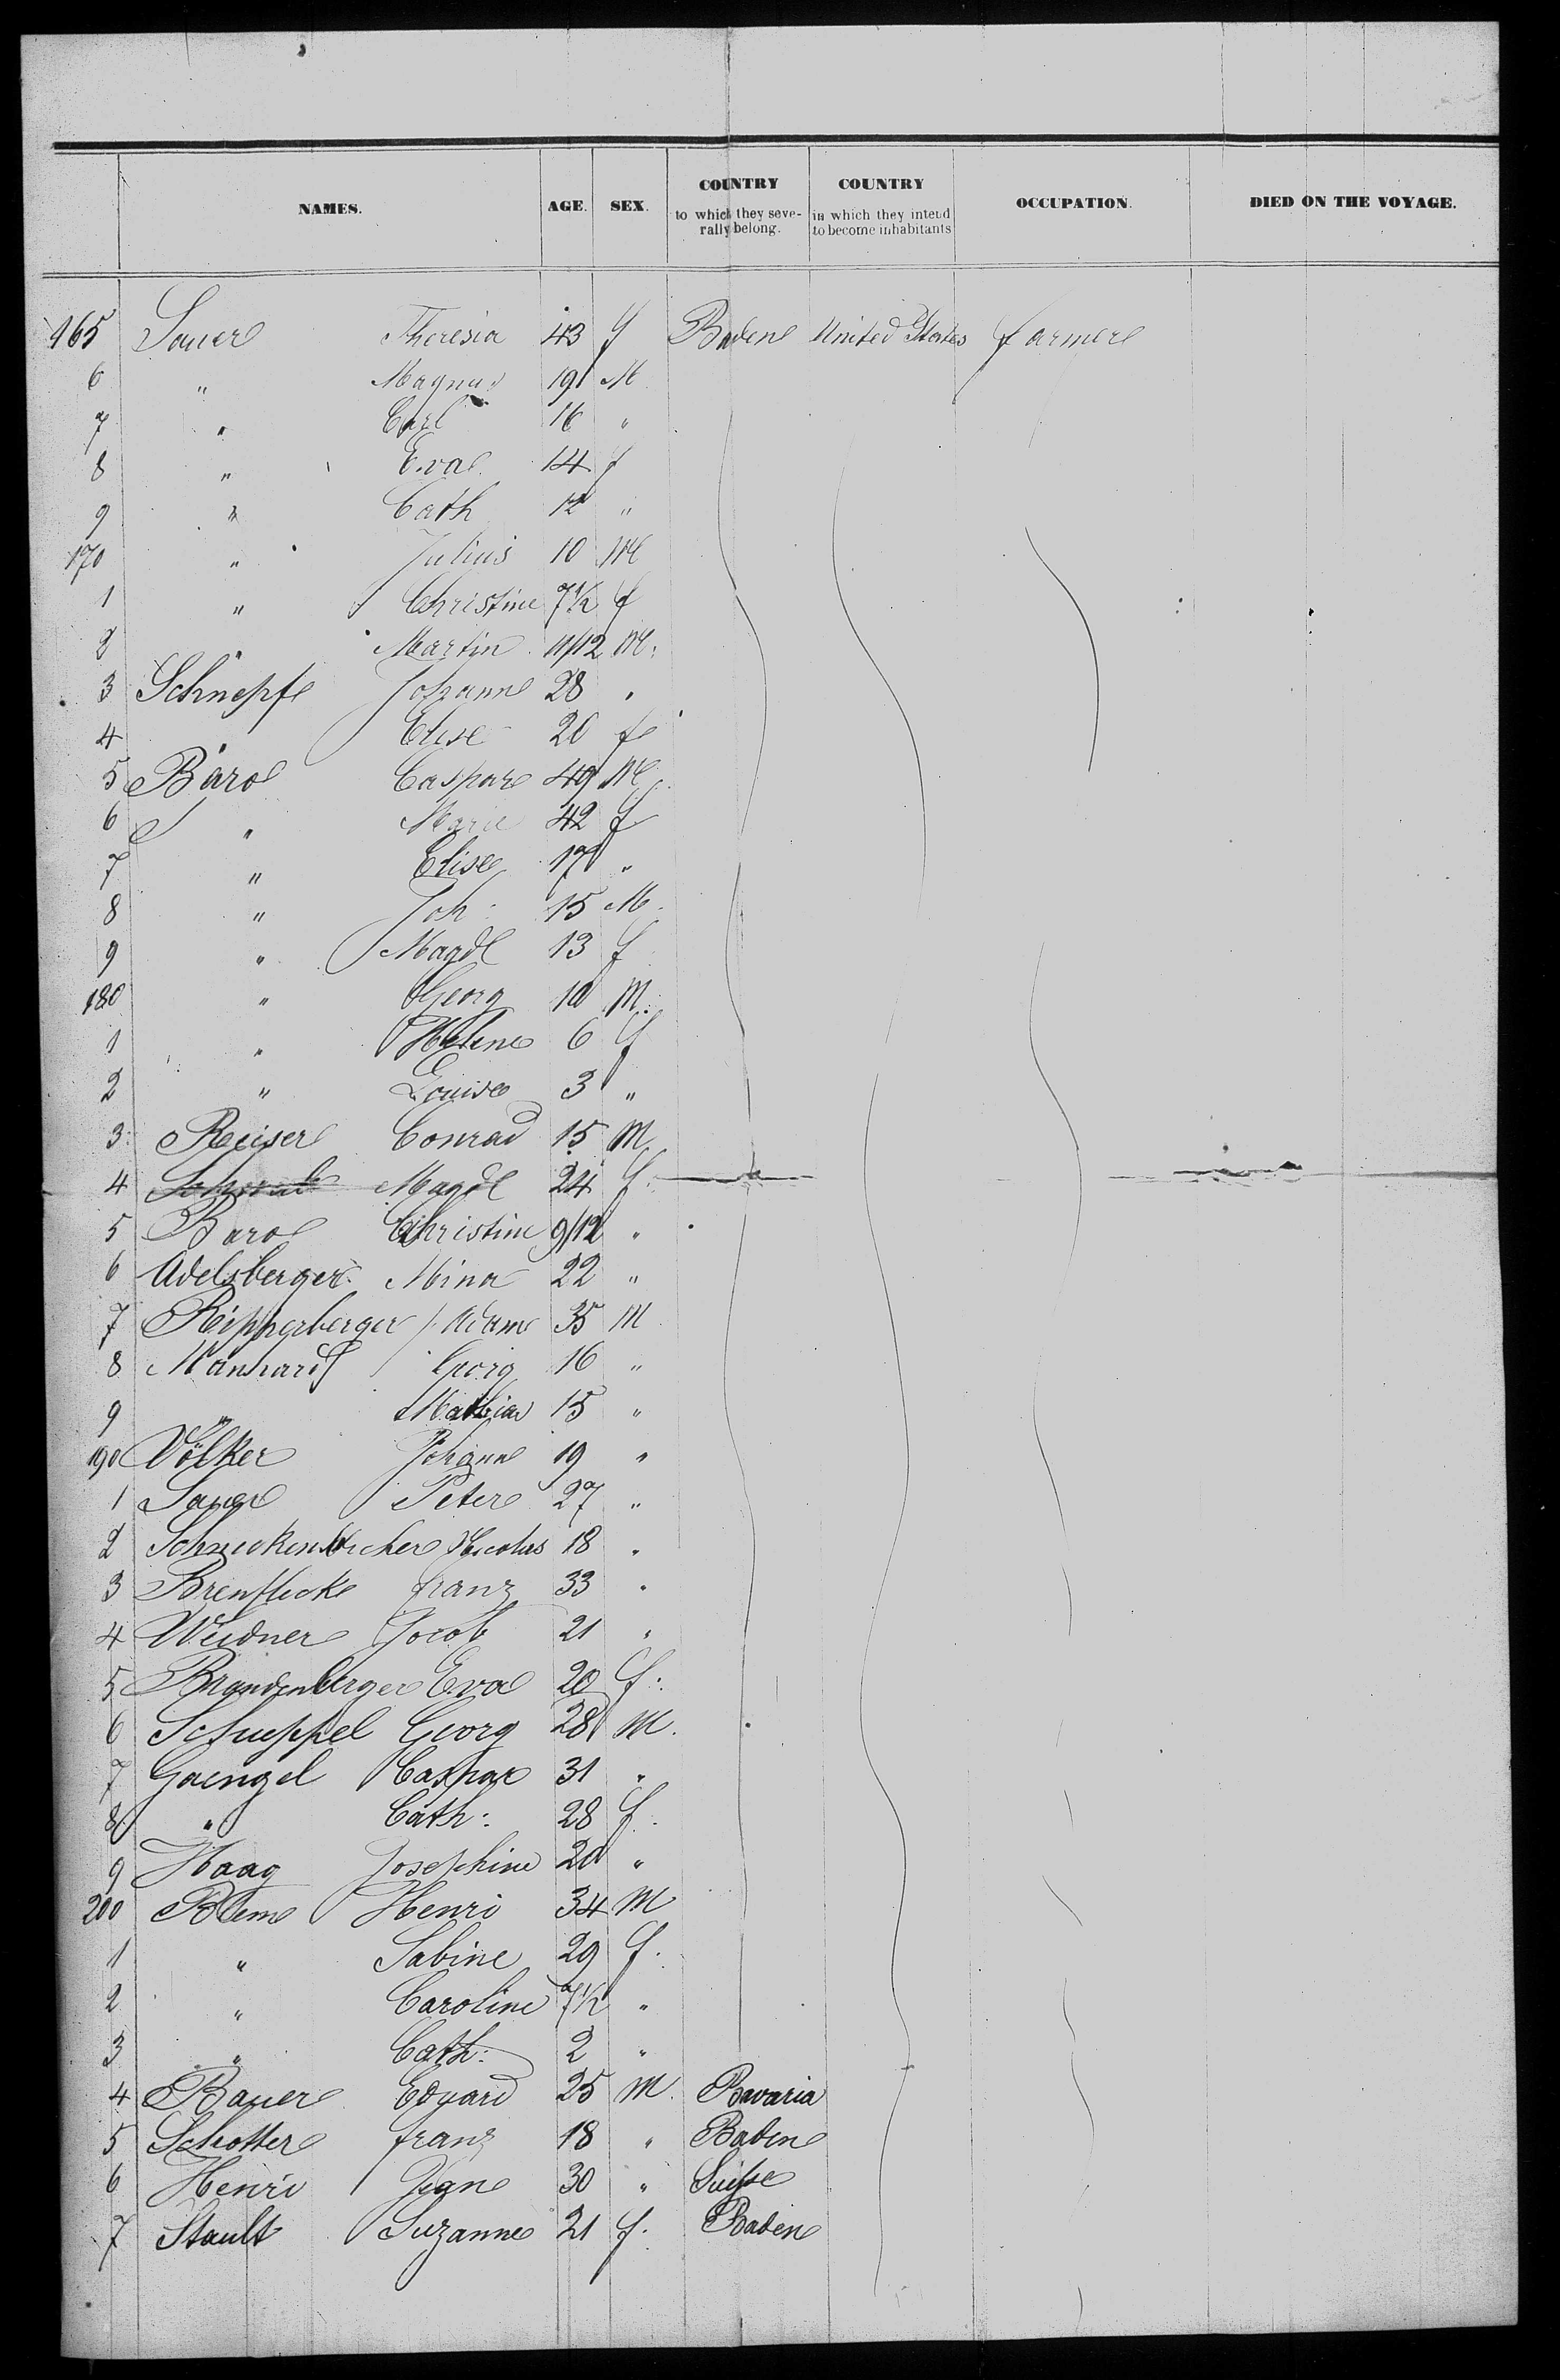 NAMES. AGE. SEX. COUNTRY to which they severally belong. COUNTRY in which they intend to become inhabitants OCCUPATION. DIED ON THE VOYAGE.
165 Sauer Theresia 43 f Baden United States farmer
6 " Magnus 19 M
7 " Carl 16 "
8 " Eva 14 f
9 " Cath 12 "
170 " Julius 10 M
1 " Christine 7½ f
2 " Martin 11/12 M.
3 Schnepf Johann 28 "
4 " Elise 20 f
5 Bär Caspar 49 M
6 " Marie 42 f
7 " Elise 17 "
8 " Joh: 15 M.
9 " Magdl 13 f
180 " Georg 10 M.
1 " Helene 6 f
2 " Louise 3 "
3 Reiser Conrad 15 M
4 Magdl 24 f.
5 Bär Christine 9/12 "
6 Adelsberger Mina 22 "
7 Ripperberger Adam 35 M
8 Georg 16 "
9 " Mathias 15 "
190 Völker Johann 19 "
1 Peter 27 "
2 Nicolas 18 "
3 franz 33 "
4 Weidner Jacob 21 "
5 Brandenberger Eva 20 f.
6 Schueppel Georg 28 M.
7 Gaengel Caspar 31 "
8 " Cath: 28 f.
9 Haag Josephine 20 "
200 Henri 34 M
1 " Sabine 29 f.
2 " Caroline 7½ "
3 " Cath: 2 "
4 Bauer Eduard 25 M. Bavaria
5 Schotter franz 18 " Baden
6 Henri Jean 30 " Suisse
7 Stault Suzanne 21 f. Baden